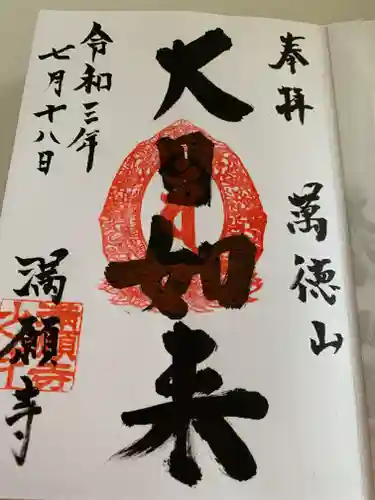 奉拝
萬德山
大日如来
令和三年
七月十八日
満願寺